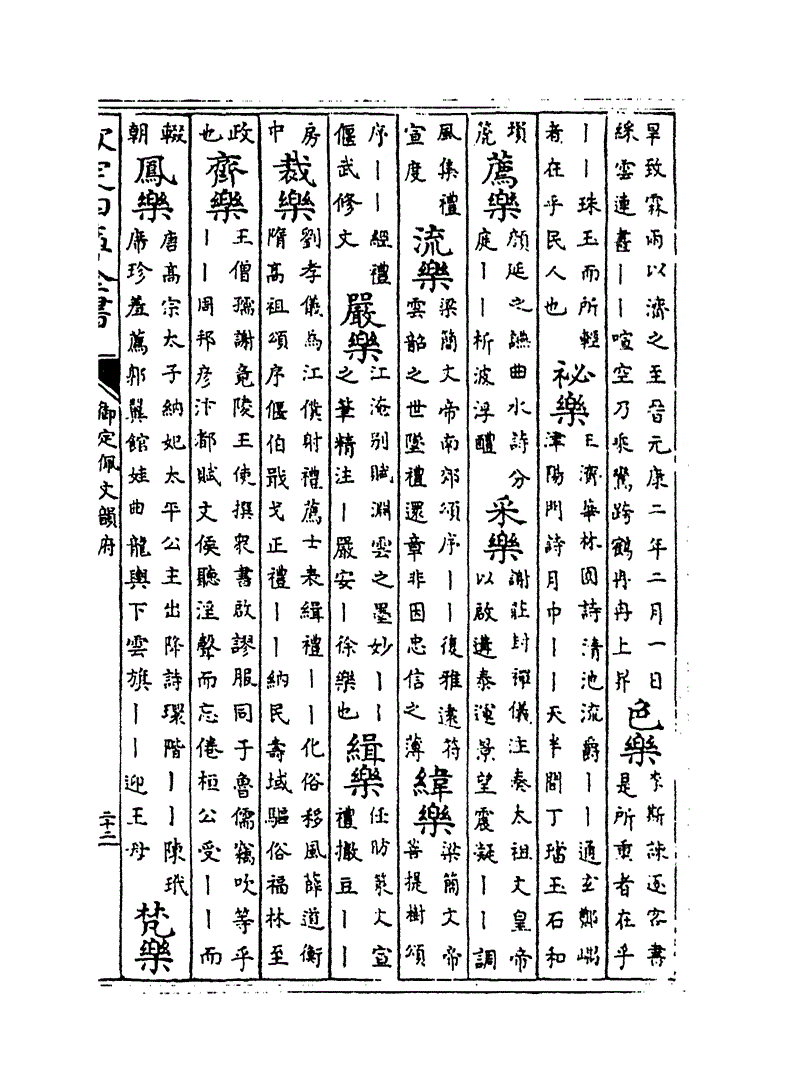 旱致霖雨以濟之至晉元康二年二月一日
綵雲連晝丨丨喧空乃乘鸞跨鶴冉冉上昇
色樂
李斯諫逐客書
是所重者在乎
丨丨珠玉而所輕
者在乎民人也
祕樂
王濟華林園詩清池流爵丨丨通玄鄭嵎
津陽門詩月中丨丨天半間丁璫玉石和
塤
箎
薦樂
顔延之讌曲水詩分
庭丨丨析波浮醴
采樂
謝莊封禪儀注奏太祖文皇帝
以啟遘泰運景望震凝丨丨調
風集禮
宣度
流樂
梁簡文帝南郊頌序丨丨復雅遠符
雲韶之世墜禮還章非因忠信之薄
緯樂
梁簡文帝
菩提樹頌
序丨丨經禮
偃武修文
嚴樂
江淹别賦淵雲之墨妙丨丨
之筆精注丨嚴安丨徐樂也
緝樂
任昉策文宣
禮撤豆丨丨
房
中
裁樂
劉孝儀爲江僕射禮薦士表緝禮丨丨化俗移風薛道衡
隋高祖頌序偃伯戢戈正禮丨丨納民壽域驅俗福林至
政
也
齊樂
王僧孺謝竟陵王使撰衆書啟謬服同于魯儒竊吹等乎
丨丨周邦彦汴都賦文侯聽淫聲而忘倦桓公受丨丨而
輟
朝
鳳樂
唐高宗太子納妃太平公主出降詩環階丨丨陳玳
席珍羞薦郭翼館娃曲龍輿下雲旗丨丨迎王母
梵樂
欽定四庫全書
御定佩文韻府
二十二